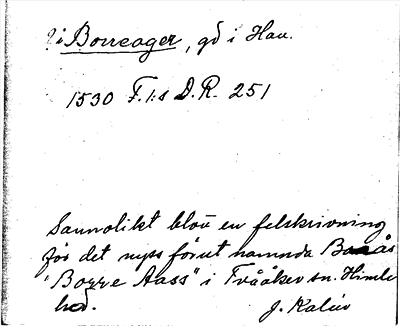 ? i Borreager, gd i Hau.
1530 F. I:s D. R. 251
Sannolikt blott en felskrivning
för det nyss förut nämnda Baås
"Borre Aass" i Tvååker sn. Himle
hd. J. Kalén